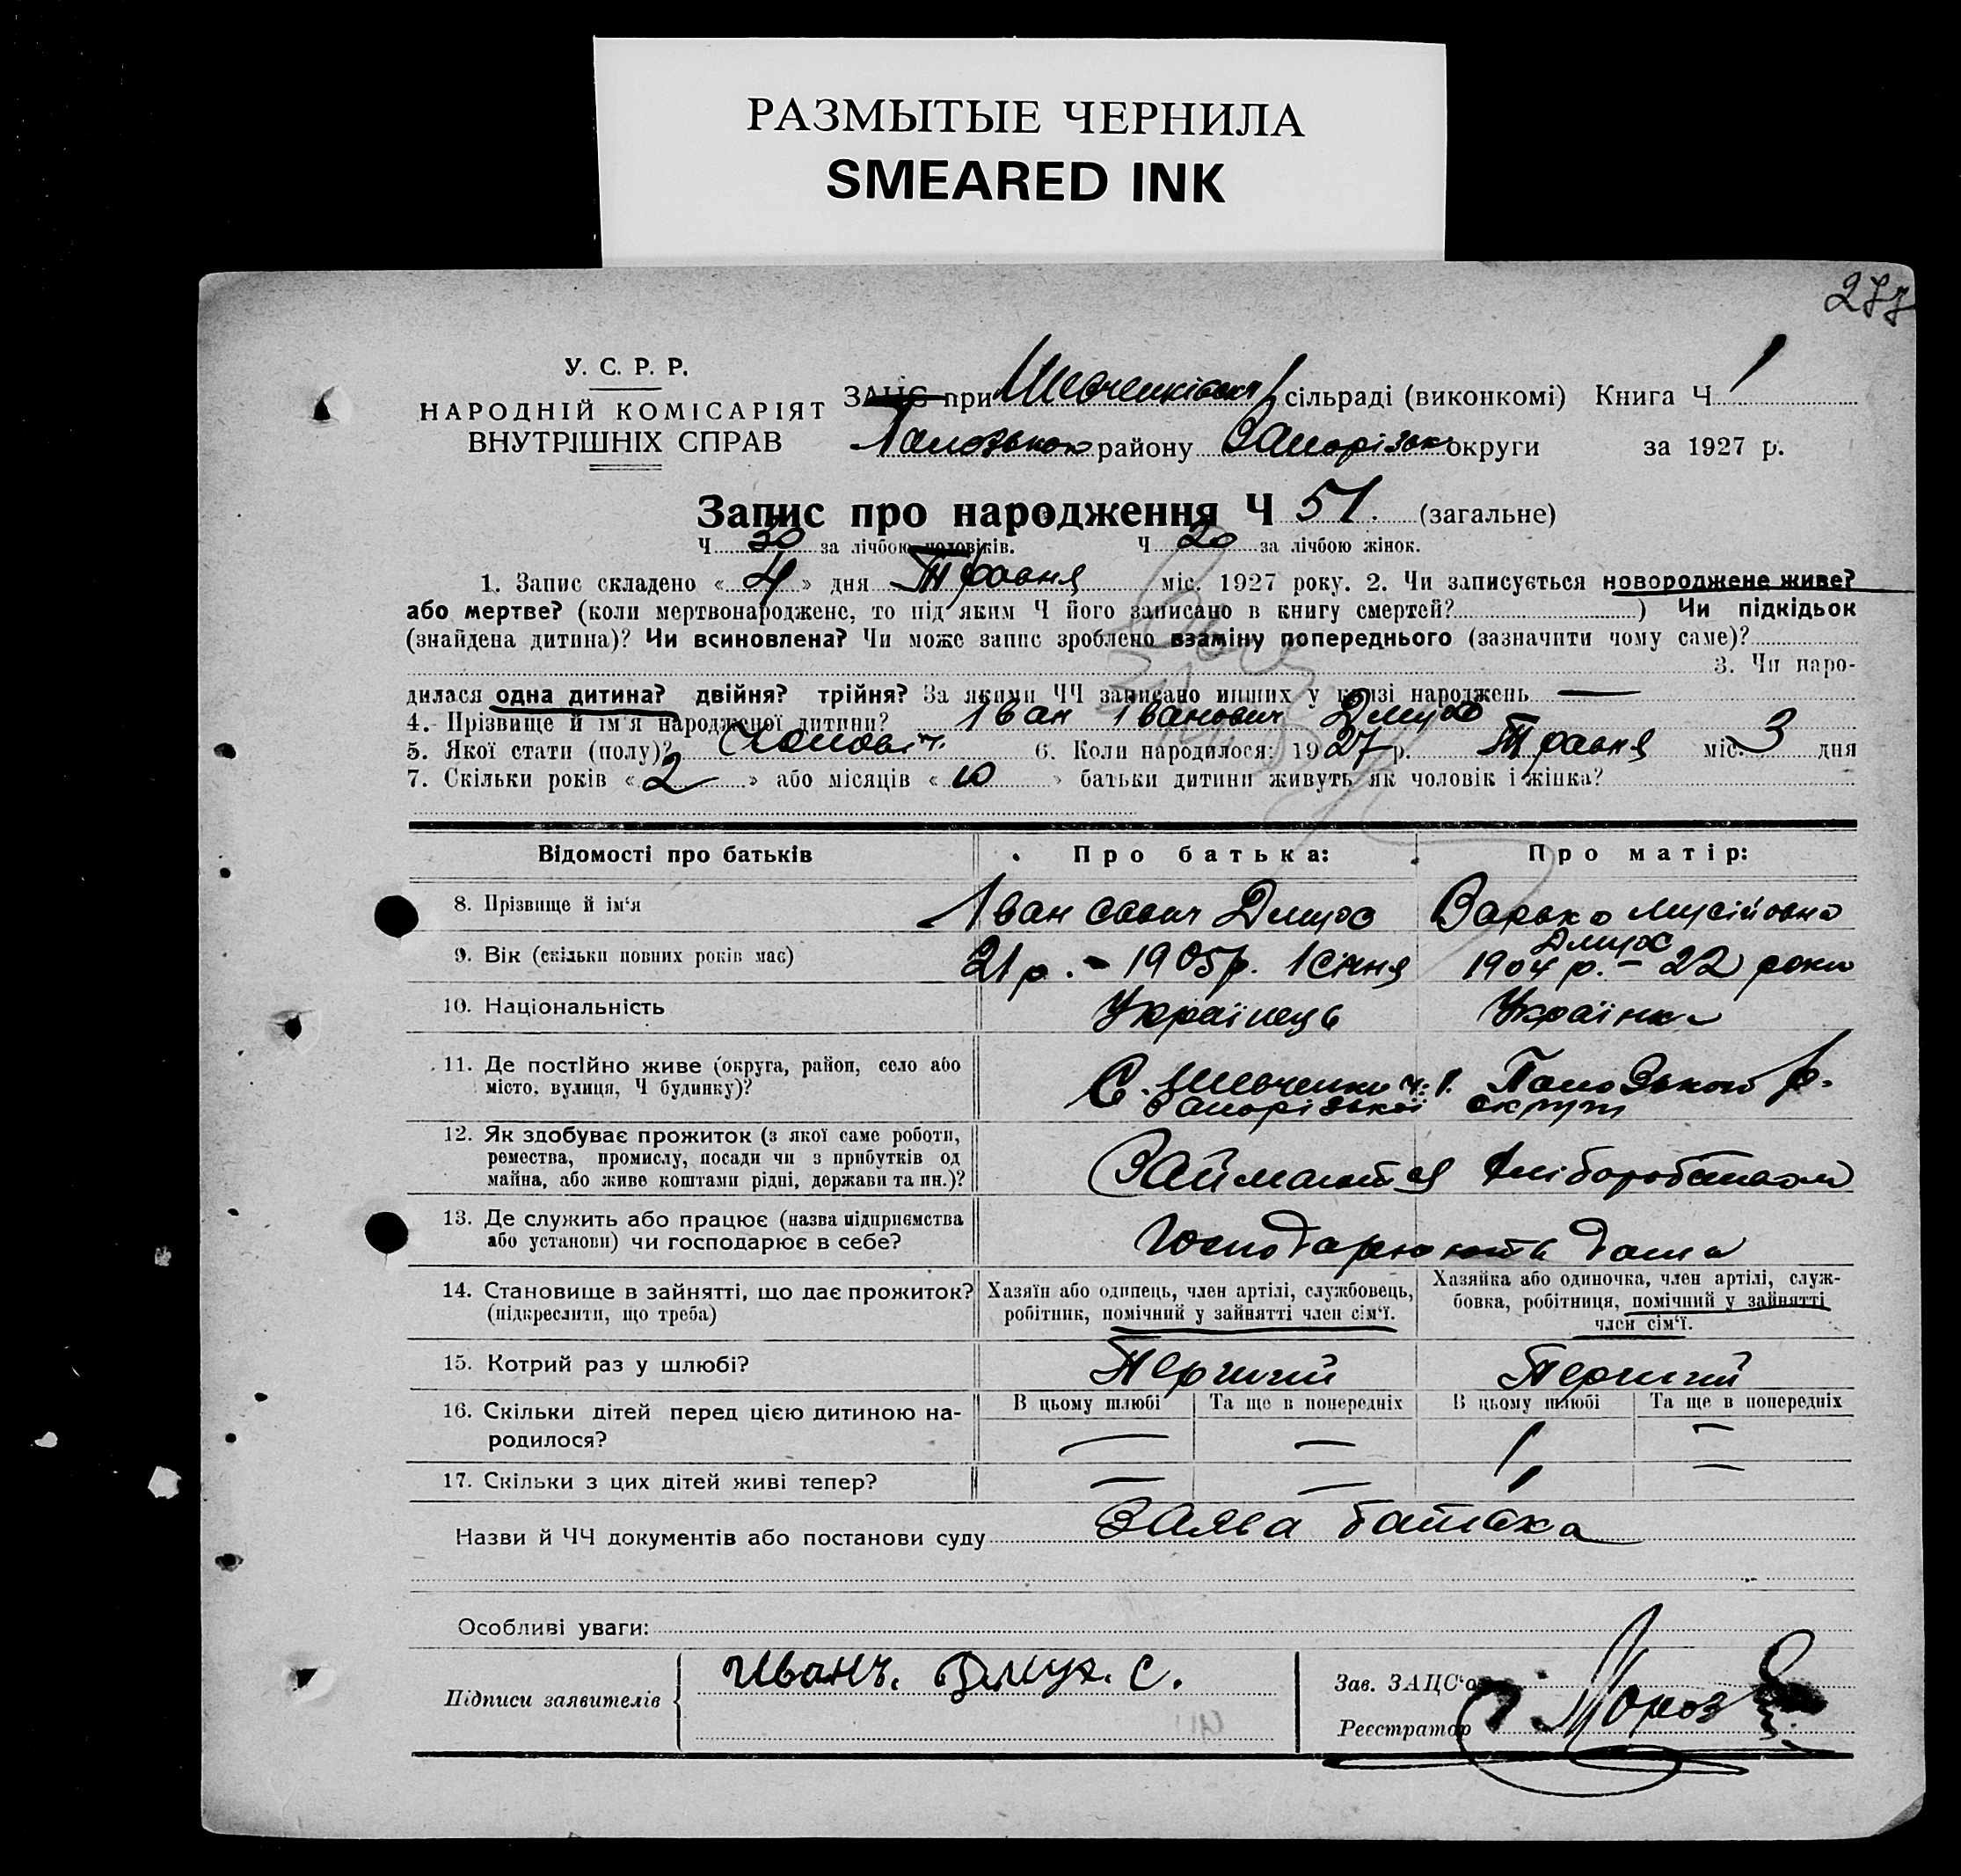 РАЗМЫТЫЕ ЧЕРНИЛА
SMEARED INK
277
У. С. Р. Р.
НАРОДНІЙ КОМІСАРІЯТ
ВНУТРІШНІХ СПРАВ
ЗАЦС при сільраді (виконкомі) Книга Ч 1
району Запорізьк округи за 1927 р.
Запис про народження Ч 51. (загальне)
Ч 30 за лічбою чоловіків. Ч 20 за лічбою жінок.
1. Запис складено « 4 » дня Травня міс. 1927 року. 2. Чи записується новороджене живе?
або мертве? (коли мертвонароджене, то під яким Ч його записано в книгу смертей? ) Чи підкідьок
(знайдена дитина)? Чи всиновлена? Чи може запис зроблено взаміну попереднього (зазначити чому саме)?
3. Чи наро-
дилася одна дитина? двійня? трійня? За якими ЧЧ записано инших у книзі народжень —
4. Прізвище й ім'я народженої дитини? Іван Іванович Дмухо
5. Якої стати (полу)? Чоловіч. 6. Коли народилося: 1927 р. Травня міс. 3 дня
7. Скільки років « 2 » або місяців « 10 » батьки дитини живуть як чоловік і жінка?
Відомості про батьків Про батька: Про матір:
8. Прізвище й ім‘я Іван Савич Дмухо Варька Мусійовна
Дмухо
9. Вік (скільки повних років має) 21 р. - 1905 р. 1 січня 1904 р. - 22 роки
10. Національність Українець Українка
11. Де постійно живе (округа, район, село або
місто, вулиця, Ч будинку)? С. Шевченко Ч. 1. р.
Запорізької округи
12. Як здобуває прожиток (з якої саме роботи,
ремества, промислу, посади чи з прибутків од
майна, або живе коштами рідні, держави та ин.)? Займаються хліборобством
13. Де служить або працює (назва підприємства
або установи) чи господарює в себе? Господарюють дома
14. Становище в зайнятті, що дає прожиток?
(підкреслити, що треба)
Хазяїн або одинець, член артілі, службовець,
робітник, помічний у зайнятті член сім‘ї.
Хазяйка або одиночка, член артілі, служ-
бовка, робітниця, помічний у зайнятті
член сім‘ї.
15. Котрий раз у шлюбі? Перший Перший
В цьому шлюбі Та ще в попередніх В цьому шлюбі Та ще в попередніх
16. Скільки дітей перед цією дитиною на-
родилося? — — 1 —
17. Скільки з цих дітей живі тепер? — — 1 —
Назви й ЧЧ документів або постанови суду Заява батька
Особливі уваги:
Підписи заявителів Иванъ. Дмух. С.
Зав. ЗАЦС‘о
Реєстратор Мороз